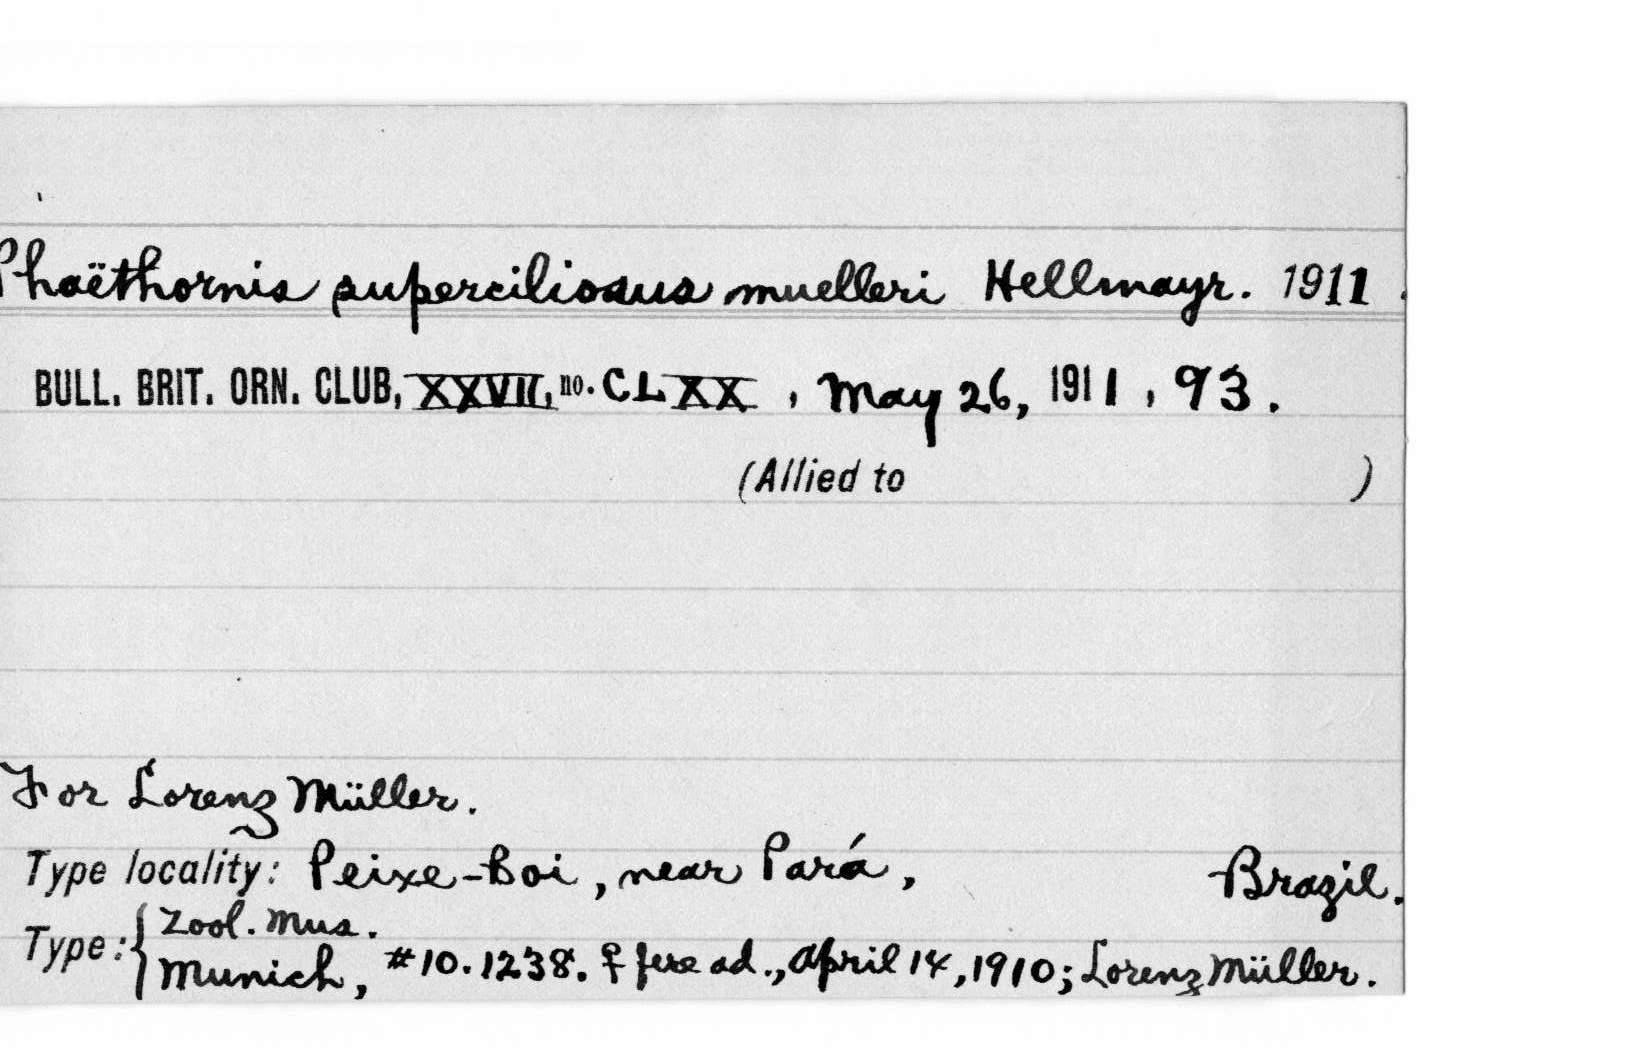 Phaëthornis superciliosus muelleri Hellmayr. 1911.
BULL. BRIT. ORN. CLUB, XXVII, no. CLXX, May 26, 1911, 93.
(Allied to )
For Lorenz Müller.
Type locality: Peixe-Boi, near Pará, Brazil.
Type: { Zool. Mus.
Munich, #10.1238. ♀ fere ad., April 14, 1910; Lorenz Müller.